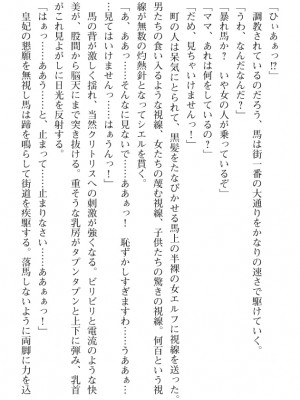 「ひぃあぁっ!?」
　調教されているのだろう、馬は街一番の大通りをかなりの速さで駆けていく。
「うわ、なんだなんだ?」
「暴れ馬か?　いや女の人が乗っているぞ」
「ママ、あれは何をしているの?」
「だめ、見ちゃいけませんっ!」
　町の人は呆気にとられて、黒髪をたなびかせる馬上の半裸の女エルフに視線を送った。
男たちの食い入るような視線、女たちの蔑む視線、子供たちの驚きの視線。何百という視
線が無数の灼熱針となってシエルを貫く。
「あ、ああっ……そんなに見ないで……ああぁっ!　恥ずかしすぎますわ……うああぁ…
…見てはいけませんっ……はぁんっ!」
　馬の背が激しく揺れ、当然クリトリスへの刺激が強くなる。ビリビリと電流のような快
美が、股間から脳天にまで突き抜ける。重そうな乳房がタプンタプンと上下に弾み、乳首
がこれ見よがしに日光を反射する。
「はぁっ……ああう……と、止まって……止まりなさい……ああぁぁっ!」
　皇妃の懇願を無視し馬は蹄を鳴らして街道を疾駆する。落馬しないように両脚に力を込